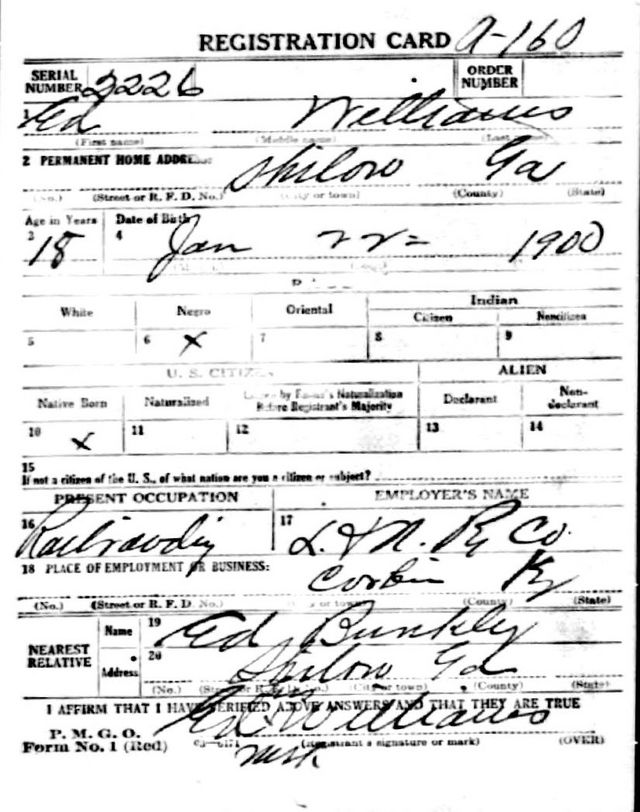 REGISTRATION CARD A-160
SERIAL NUMBER 2226 ORDER NUMBER
1 Ed Williams
(First name) (Middle name) (Last name)
2 PERMANENT HOME ADDRESS:
Shilow Ga
(No.) (Street or R. F. D. No.) (City or town) (County) (State)
Age in Years Date of Birth
3 18 4 Jan 22 1900
White Negro Oriental Indian
Citizen Noncitizen
5 6 X 7 8 9
U. S. CITIZEN ALIEN
Native Born Naturalized Citizen by Father's Naturalization Before Registrant's Majority Declarant Non-declarant
10 X 11 12 13 14
15
If not a citizen of the U. S., of what nation are you a citizen or subject?
PRESENT OCCUPATION EMPLOYER'S NAME
16 Railroading 17 L. & N. Ry Co.
18 PLACE OF EMPLOYMENT OR BUSINESS:
Corbin Ky
(No.) (Street or R. F. D. No.) (City or town) (County) (State)
NEAREST RELATIVE Name 19 Ed Bunkly
Address 20 Shilow Ga
(No.) (Street or R. F. D. No.) (City or town) (County) (State)
I AFFIRM THAT I HAVE VERIFIED ABOVE ANSWERS AND THAT THEY ARE TRUE
P. M. G. O.
Form No. 1 (Red) Ed Williams
(Registrant's signature or mark) (OVER)
mark